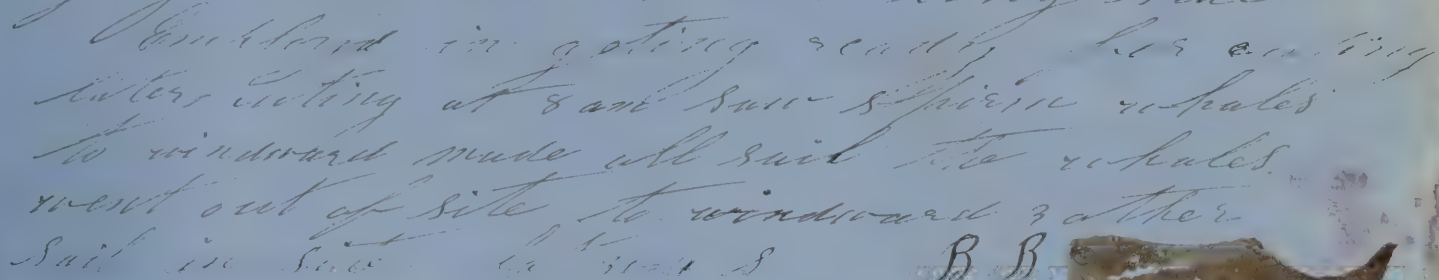 Emploved in geting ready her cuting
at 8 am saw Spirm whales
to windward made all sail The whales
went out of site to windward 3 other
Sail in site B B